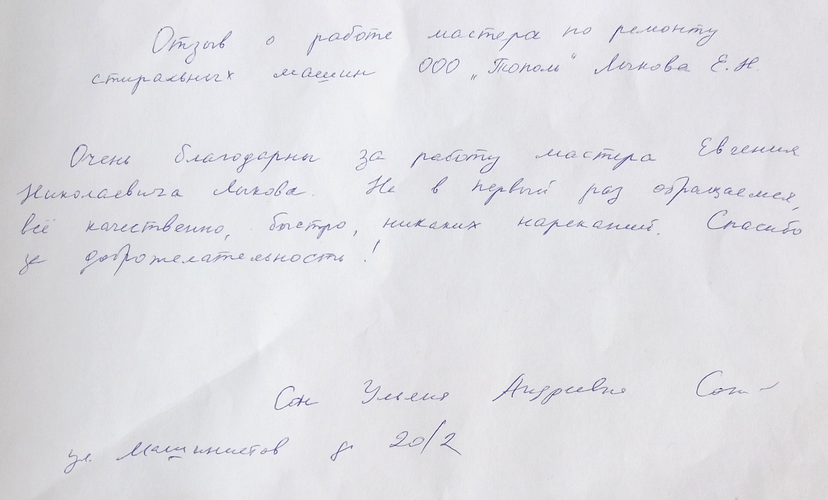 Отзыв о работе мастера по ремонту
стиральных машин ООО „Тополь" Лыкова Е.Н.
Очень благодарны за работу мастера Евгения
Николаевича Лыкова. Не в первый раз обращаемся,
всё качественно, быстро, никаких нареканий. Спасибо
за доброжелательность!
Сон Ульяна Андреевна
ул. Машинистов д 20/2